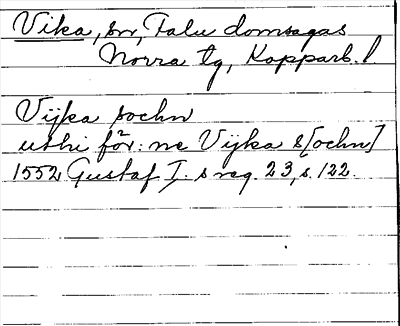 Vika, sn, Falu domsagas
Norra tg, Kopparb. l
Vijka sochn
uthi för:ne Vijka s[ochn]
1552 Gustaf I.s reg. 23, s. 122.